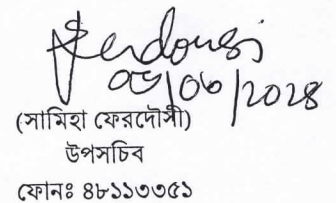 Ferdousi
০৫/০৬/২০২৪
(সামিহা ফেরদৌসী)
উপসচিব
ফোনঃ ৪৮১১৩৩৫১